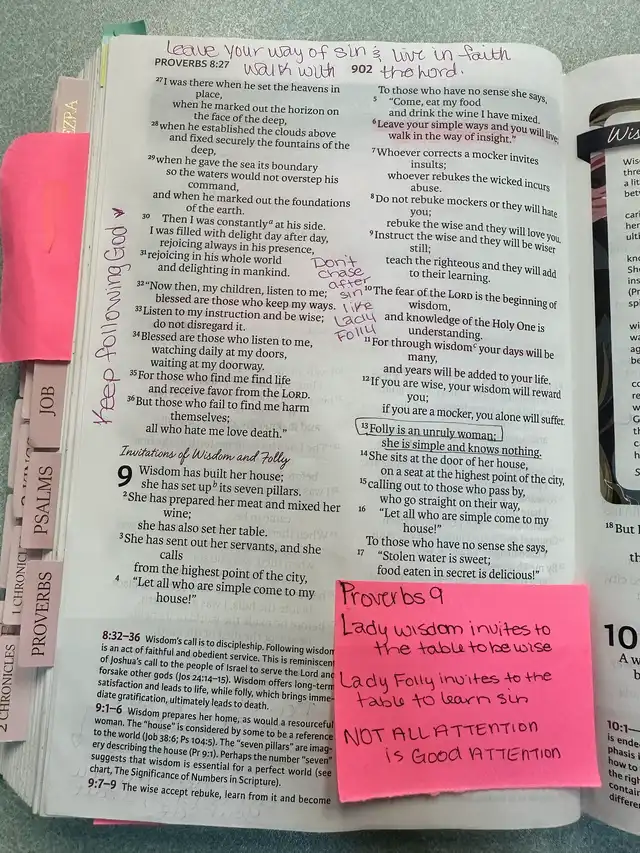 Leave your way of sin & live in faith
walk with the Lord.
PROVERBS 8:27
902
27 I was there when he set the heavens in
place,
when he marked out the horizon on
the face of the deep,
28 when he established the clouds above
and fixed securely the fountains of the
deep,
29 when he gave the sea its boundary
so the waters would not overstep his
command,
and when he marked out the foundations
of the earth.
30 Then I was constantly a at his side.
I was filled with delight day after day,
rejoicing always in his presence,
31 rejoicing in his whole world
and delighting in mankind.
32 "Now then, my children, listen to me;
blessed are those who keep my ways.
33 Listen to my instruction and be wise;
do not disregard it.
34 Blessed are those who listen to me,
watching daily at my doors,
waiting at my doorway.
35 For those who find me find life
and receive favor from the LORD.
36 But those who fail to find me harm
themselves;
all who hate me love death."
Invitations of Wisdom and Folly
9 Wisdom has built her house;
she has set up b its seven pillars.
2 She has prepared her meat and mixed her
wine;
she has also set her table.
3 She has sent out her servants, and she
calls
from the highest point of the city,
4 "Let all who are simple come to my
house!"
To those who have no sense she says,
5 "Come, eat my food
and drink the wine I have mixed.
6 Leave your simple ways and you will live;
walk in the way of insight."
7 Whoever corrects a mocker invites
insults;
whoever rebukes the wicked incurs
abuse.
8 Do not rebuke mockers or they will hate
you;
rebuke the wise and they will love you.
9 Instruct the wise and they will be wiser
still;
teach the righteous and they will add
to their learning.
10 The fear of the LORD is the beginning of
wisdom,
and knowledge of the Holy One is
understanding.
11 For through wisdom c your days will be
many,
and years will be added to your life.
12 If you are wise, your wisdom will reward
you;
if you are a mocker, you alone will suffer.
13 Folly is an unruly woman;
she is simple and knows nothing.
14 She sits at the door of her house,
on a seat at the highest point of the city,
15 calling out to those who pass by,
who go straight on their way,
16 "Let all who are simple come to my
house!"
To those who have no sense she says,
17 "Stolen water is sweet;
food eaten in secret is delicious!"
Keep following God
Don't
chase
after
sin
like
Lady
Folly
8:32–36 Wisdom's call is to discipleship. Following wisdom
is an act of faithful and obedient service. This is reminiscent
of Joshua's call to the people of Israel to serve the Lord and
forsake other gods (Jos 24:14–15). Wisdom offers long-term
satisfaction and leads to life, while folly, which brings imme-
diate gratification, ultimately leads to death.
9:1–6 Wisdom prepares her home, as would a resourceful
woman. The "house" is considered by some to be a reference
to the world (Job 38:6; Ps 104:5). The "seven pillars" are imag-
ery describing the house (Pr 9:1). Perhaps the number "seven"
suggests that wisdom is essential for a perfect world (see
chart, The Significance of Numbers in Scripture).
9:7–9 The wise accept rebuke, learn from it and become
Proverbs 9
Lady wisdom invites to
the table to be wise
Lady Folly invites to the
table to learn sin
NOT ALL ATTENTION
is Good ATTENTION
EZRA
JOB
PSALMS
1 CHRONICL
PROVERBS
2 CHRONICLES
Wis
18 But
10
A w
10:1–
is ende
phasis i
how to
the
contain
differe